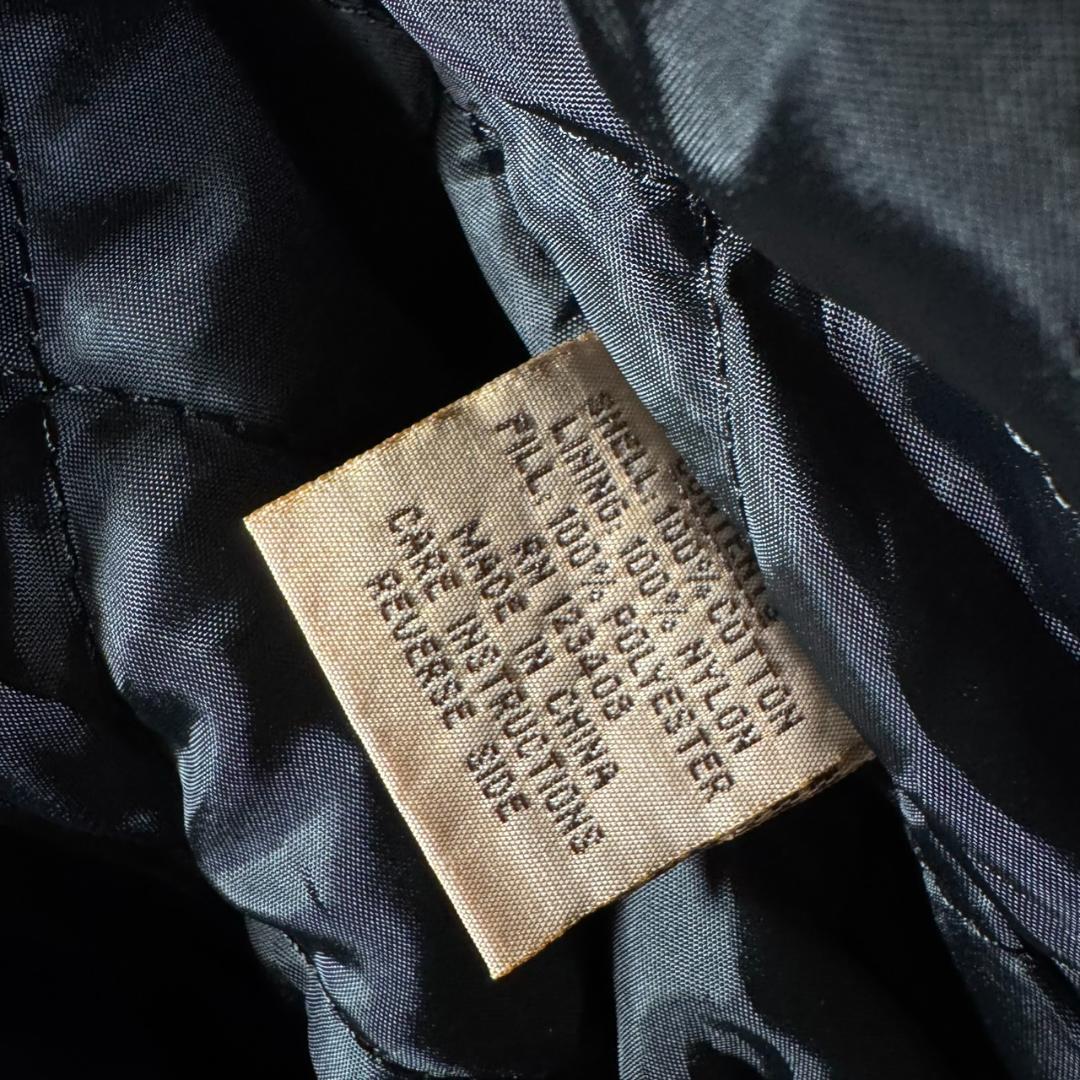 CONTENTS
SHELL: 100% COTTON
LINING: 100% NYLON
FILL: 100% POLYESTER
RN 123408
MADE IN CHINA
CARE INSTRUCTIONS
REVERSE SIDE